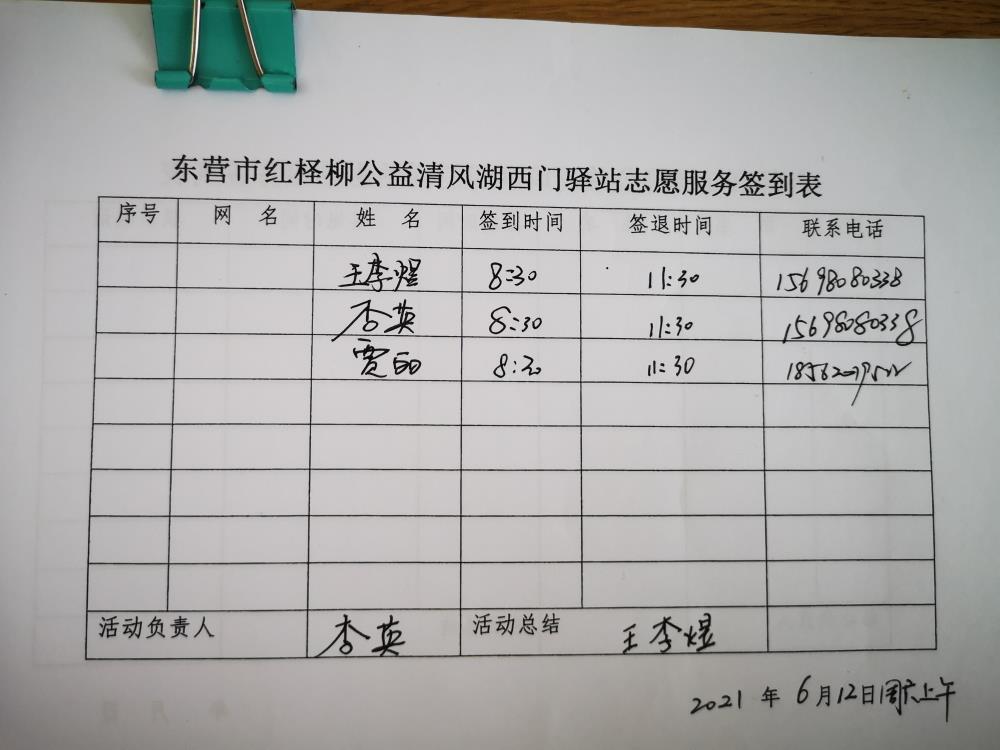 东营市红柽柳公益清风湖西门驿站志愿服务签到表
序号 网 名 姓 名 签到时间 签退时间 联系电话
王李煜 8:30 11:30 15698080338
李英 8:30 11:30 15698080338
贾 8:30 11:30
活动负责人 李英 活动总结 王李煜
2021 年 6月12日周六上午